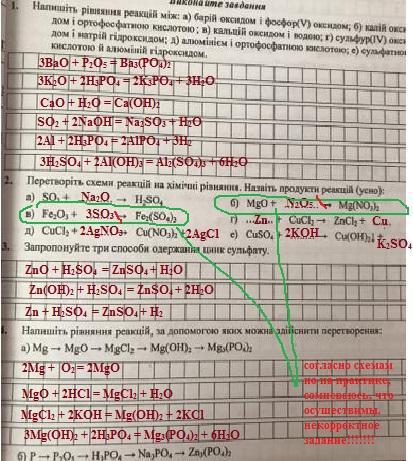 Виконайте завдання
1. Напишіть рівняння реакцій між: а) барій оксидом і фосфор(V) оксидом; б) калій окси
дом і ортофосфатною кислотою; в) кальцій оксидом і водою; г) сульфур(IV) окси
дом і натрій гідроксидом; д) алюмінієм і ортофосфатною кислотою; е) сульфатно
кислотою й алюміній гідроксидом.
3BaO + P₂O₅ = Ba₃(PO₄)₂
3K₂O + 2H₃PO₄ = 2K₃PO₄ + 3H₂O
CaO + H₂O = Ca(OH)₂
SO₂ + 2NaOH = Na₂SO₃ + H₂O
2Al + 2H₃PO₄ = 2AlPO₄ + 3H₂
3H₂SO₄ + 2Al(OH)₃ = Al₂(SO₄)₃ + 6H₂O
2. Перетворіть схеми реакцій на хімічні рівняння. Назвіть продукти реакцій (усно):
а) SO₃ + Na₂O → H₂SO₄ б) MgO + ..N₂O₅.. → Mg(NO₃)₂
в) Fe₂O₃ + 3SO₃ → Fe₂(SO₄)₃ г) ...Zn.. + CuCl₂ → ZnCl₂ + Cu
д) CuCl₂ + 2AgNO₃ → Cu(NO₃)₂ + 2AgCl е) CuSO₄ + 2KOH → Cu(OH)₂↓ + K₂SO₄
3. Запропонуйте три способи одержання цинк сульфату.
ZnO + H₂SO₄ = ZnSO₄ + H₂O
Zn(OH)₂ + H₂SO₄ = ZnSO₄ + 2H₂O
Zn + H₂SO₄ = ZnSO₄ + H₂
4. Напишіть рівняння реакцій, за допомогою яких можна здійснити перетворення:
а) Mg → MgO → MgCl₂ → Mg(OH)₂ → Mg₃(PO₄)₂
2Mg + O₂ = 2MgO
MgO + 2HCl = MgCl₂ + H₂O
MgCl₂ + 2KOH = Mg(OH)₂ + 2KCl
3Mg(OH)₂ + 2H₃PO₄ = Mg₃(PO₄)₂ + 6H₂O
согласно схемам
но на практике,
сомневаюсь, что
осуществимы,
некорректное
задание!!!!!!!
б) P → P₂O₅ → H₃PO₄ → Na₃PO₄ → Zn₃(PO₄)₂